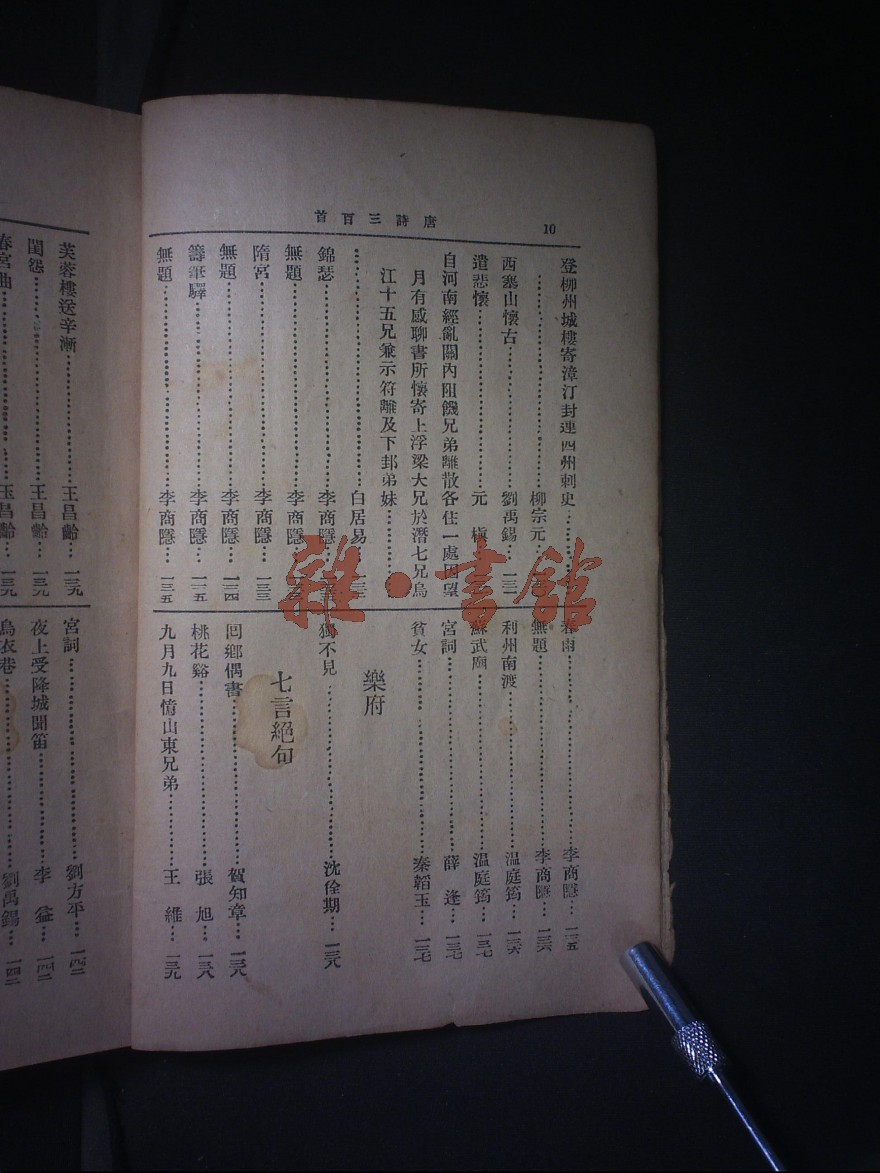 唐詩三百首
10
登柳州城樓寄漳汀封連四州刺史
柳宗元
西塞山懷古 劉禹錫
遣悲懷 元稹
自河南經亂關內阻饑兄弟離散各住一處因望
月有感聊書所懷寄上浮梁大兄於潛七兄烏
江十五兄兼示符離及下邽弟妹
白居易
錦瑟 李商隱
無題 李商隱
隋宮 李商隱 一三三
無題 李商隱 一三四
籌筆驛 李商隱
無題 李商隱 一三五
春雨 李商隱 一三五
無題 李商隱 一三六
利州南渡 温庭筠 一三六
蘇武廟 温庭筠 一三七
宮詞 薛逢 一三七
貧女 秦韜玉 一三七
樂府
獨不見 沈佺期 一三八
七言絕句
回鄉偶書 賀知章 一三八
桃花谿 張旭 一三八
九月九日憶山東兄弟 王維 一三九
芙蓉樓送辛漸 王昌齡 一三九
閨怨 王昌齡 一三九
春宮曲 王昌齡 一三九
宮詞 劉方平 一四二
夜上受降城聞笛 李益 一四二
烏衣巷 劉禹錫 一四二
雜·書館